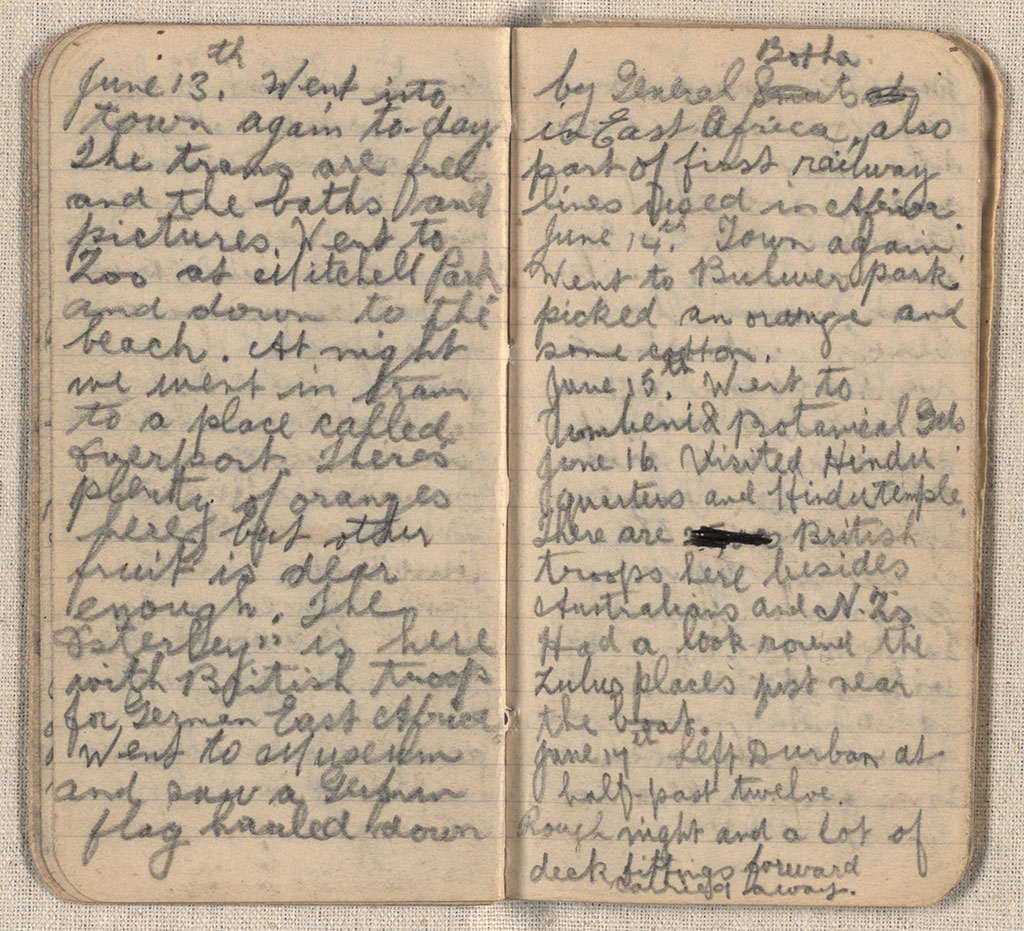 June 13th. Went into
town again to-day.
The trams are free
and the baths and
pictures. Went to
Zoo at Mitchell Park
and down to the
beach. At night
we went in tram
to a place called
Overport. Theres
plenty of oranges
here but other
fruit is dear
enough. The
Osterley" is here
with British troops
for German East Africa
Went to Museum
and saw a German
flag hauled down
by General Smuts Botha
in East Africa, also
part of first railway
lines used in Africa.
June 14th. Town again.
Went to Bulwer park
picked an orange and
some cotton.
June 15th. Went to
Botanical Gds
June 16. Visited Hindu
quarters and Hindu temple.
There are British
troops here besides
Australians and N.Zs
Had a look round the
Zulus places just near
the boat.
June 17th Left Durban at
half-past twelve.
Rough night and a lot of
deck fittings forward
carried away.